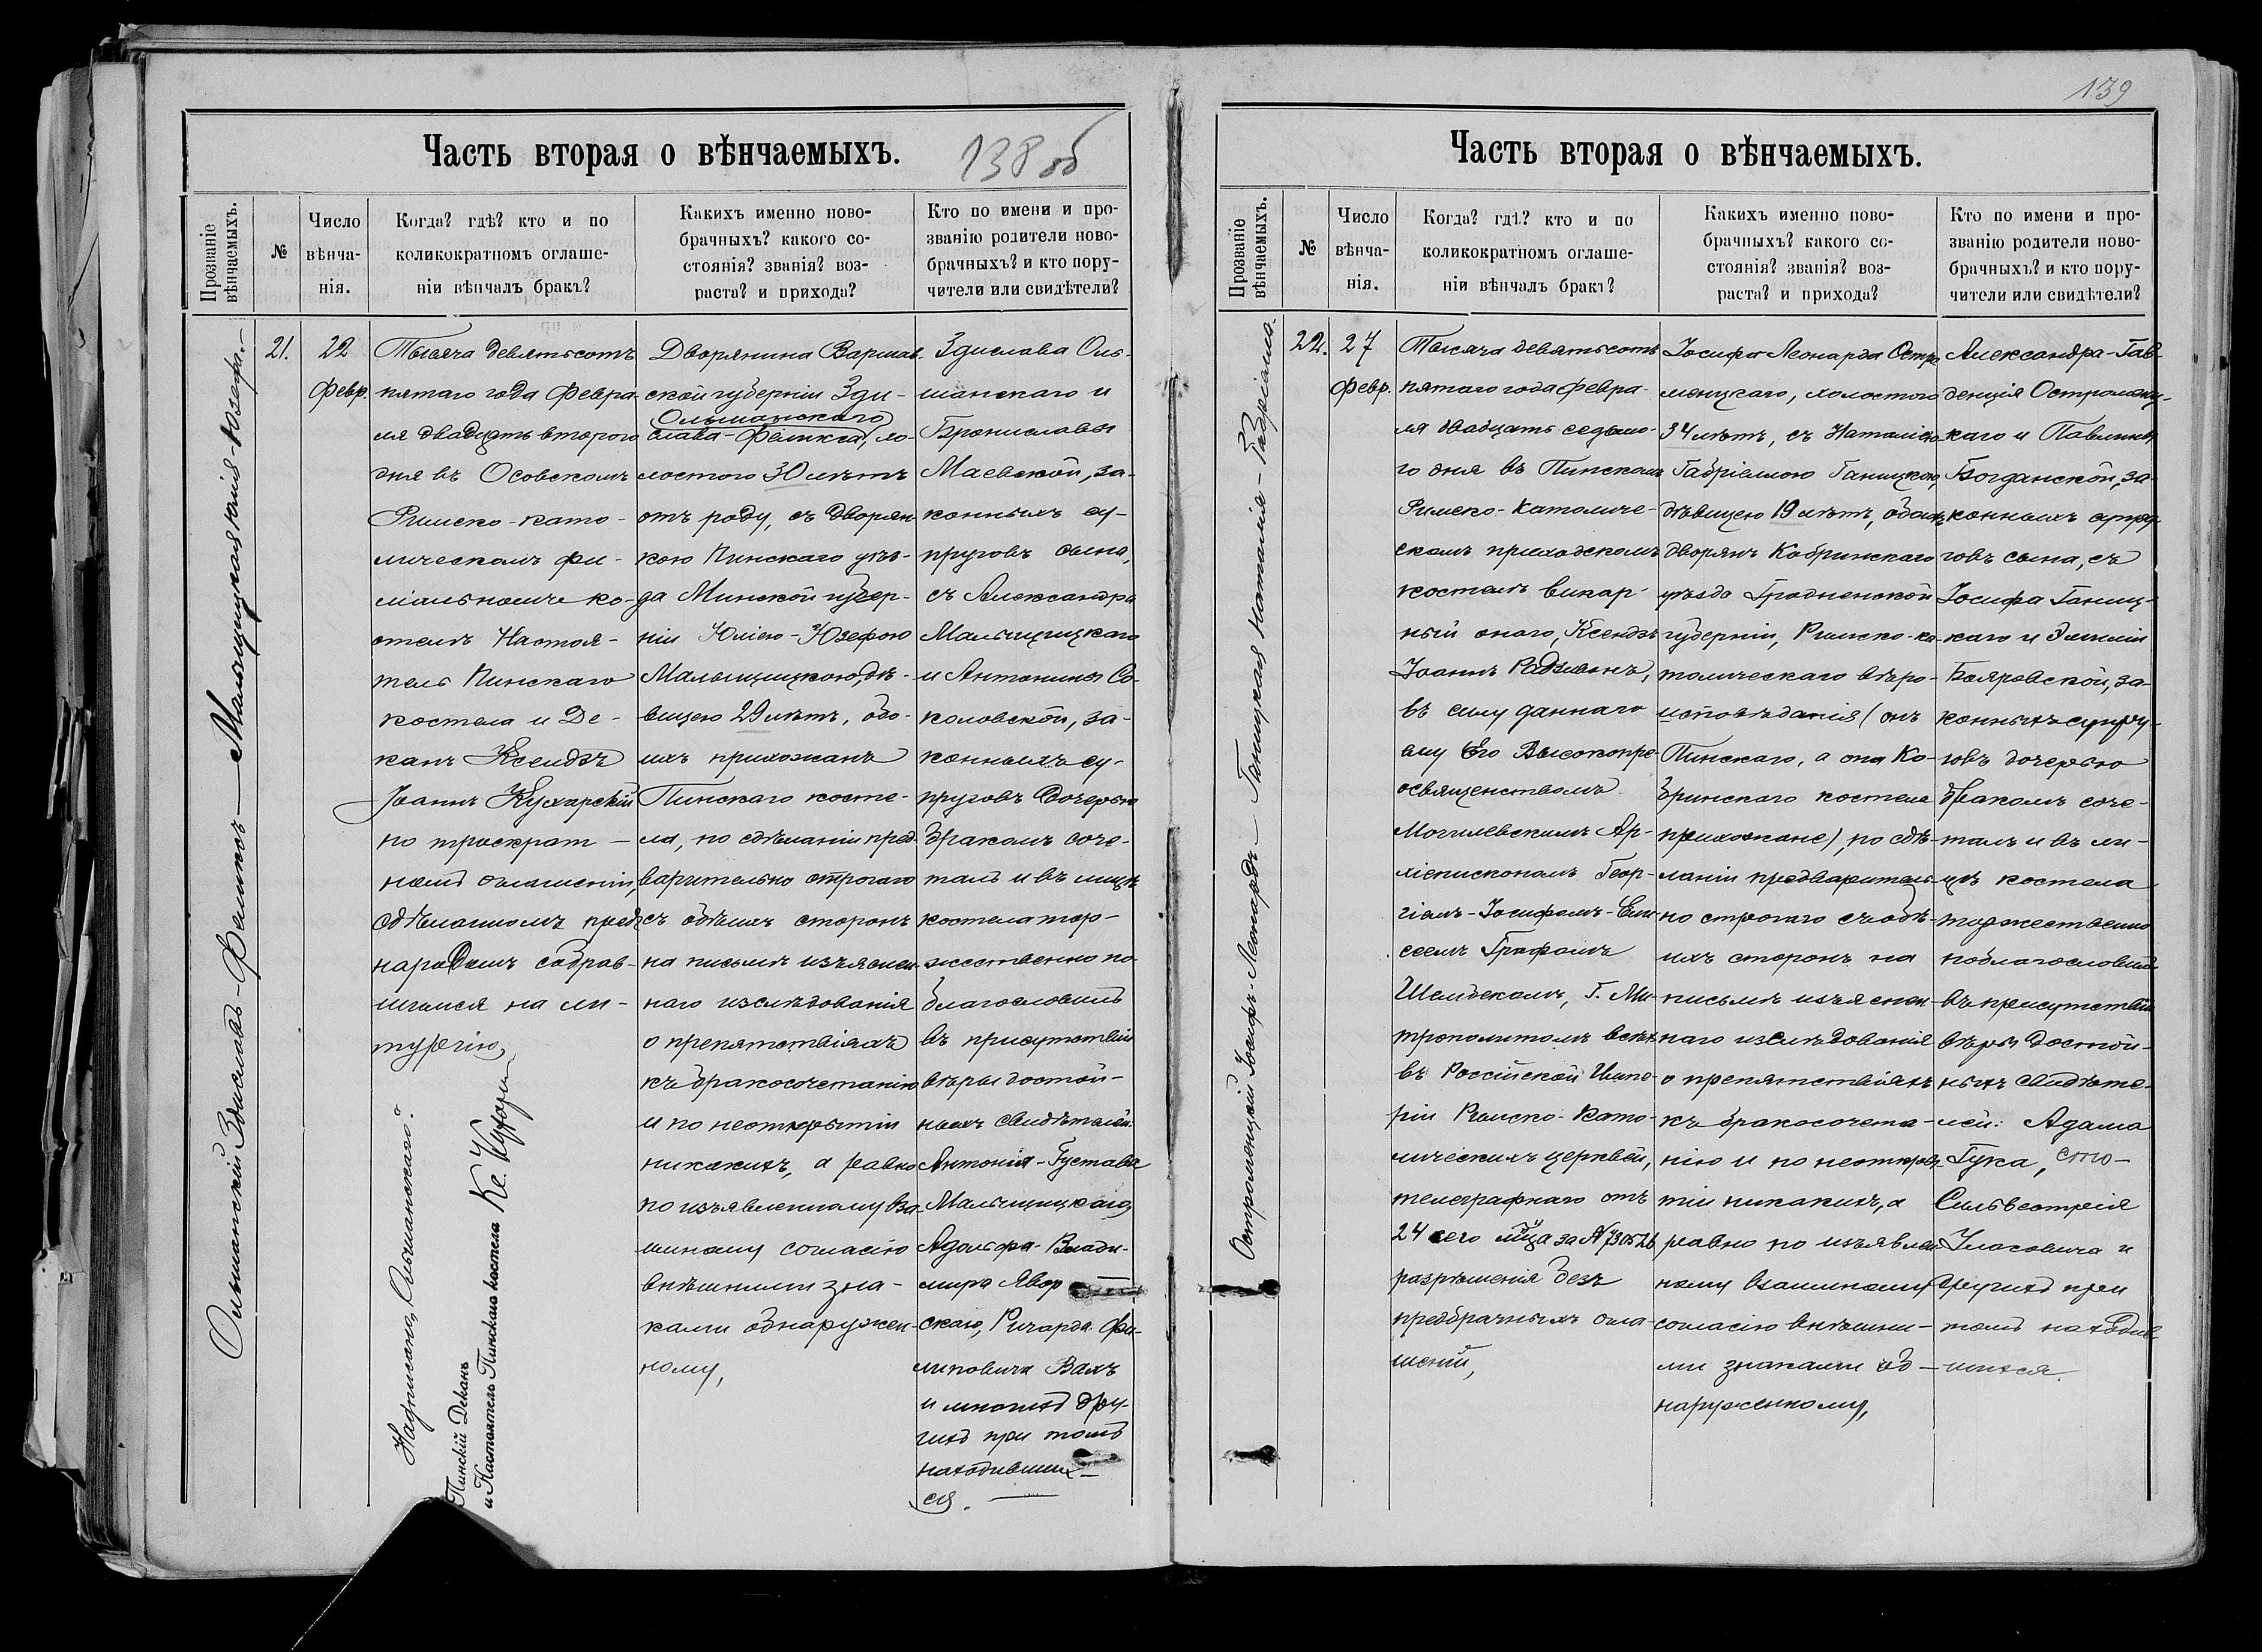 138 об
Часть вторая о вѣнчаемыхъ.
Прозваніе вѣнчаемыхъ.
№
Число вѣнча-
нія.
Когда? гдѣ? кто и по
коликократномъ оглаше-
ніи вѣнчалъ бракъ?
Какихъ именно ново-
брачныхъ? какого со-
стоянія? званія? воз-
раста? и прихода?
Кто по имени и про-
званію родители ново-
брачныхъ? и кто пору-
чители или свидѣтели?
Ольшанскій Здиславъ-Феликсъ — Мальщицкая Юлія-Юзефа.
21.
22
Февр.
Тысяча девятьсотъ
пятаго года Февра-
ля двадцать второго
дня въ Осовскомъ
Римско-като-
лическомъ фи-
ліальномъ ко-
стелѣ Настоя-
тель Пинскаго
костела и Де-
канъ Ксендзъ
Іоаннъ Кухарскій
по троекрат-
номъ оглашеніи,
сдѣланномъ предъ
народомъ собрав-
шимся на ли-
тургію,
Надписано „Ольшанскаго".
Пинскій Деканъ
и Настоятель Пинскаго костела Кс.
Дворянина Варшав-
ской губерніи Зди-
Ольшанскаго
слава-Феликса, хо-
лостого 30 лѣтъ
отъ роду, съ дворян-
кою Пинскаго уѣз-
да Минской губер-
ніи Юліею-Юзефою
Мальщицкою, дѣ-
вицею 29 лѣтъ, обо-
ихъ прихожанъ
Пинскаго косте-
ла, по сдѣланіи пред-
варительно строгаго
съ обѣихъ сторонъ
на письмѣ изъяснен-
наго изслѣдованія
о препятствіяхъ
къ бракосочетанію
и по неоткрытіи
никакихъ, а равно
по изъявленному вза-
имному согласію
внѣшними зна-
ками обнаружен-
ному,
Здислава Оль-
шанскаго и
Брониславы
Маевской, за-
конныхъ су-
пруговъ сына,
съ Александра
Мальщицкаго
и Антонины Со-
коловской, за-
конныхъ су-
пруговъ дочерью
бракомъ соче-
талъ и въ лицѣ
костела тор-
жественно по-
благословилъ
въ присутствіи
вѣры достой-
ныхъ свидѣтелей:
Антонія-Густава
Мальщицкаго,
Адольфа-Влади-
мира Явор-
скаго, Ричарда Фи-
липовича Вахъ
и многихъ дру-
гихъ при томъ
находивших-
ся.
139
Часть вторая о вѣнчаемыхъ.
Прозваніе вѣнчаемыхъ.
№
Число вѣнча-
нія.
Когда? гдѣ? кто и по
коликократномъ оглаше-
ніи вѣнчалъ бракъ?
Какихъ именно ново-
брачныхъ? какого со-
стоянія? званія? воз-
раста? и прихода?
Кто по имени и про-
званію родители ново-
брачныхъ? и кто пору-
чители или свидѣтели?
Остромецкій Іосифъ-Леонардъ — Ганицкая Наталія-Габріелла.
22.
27
Февр.
Тысяча девятьсотъ
пятаго года февра-
ля двадцать седьмо-
го дня въ Пинскомъ
Римско-Католиче-
скомъ приходскомъ
костелѣ викар-
ный онаго, Ксендзъ
Іоаннъ
въ силу даннаго
ему Его Высокопре-
освященствомъ
Могилевскимъ Ар-
хіепископомъ Геор-
гіемъ-Іосифомъ-Ели-
сеемъ Графомъ
Шембекомъ, Г. Ми-
трополитомъ всѣхъ
въ Россійской Импе-
ріи Римско-Като-
лическихъ церквей,
телеграфнаго отъ
24 сего мѣца за №
разрѣшенія безъ
предбрачныхъ огла-
шеній,
Іосифа Леонарда Остро-
мецкаго, холостого
34 лѣтъ, съ Наталіею
Габріеллою Ганицкою,
дѣвицею 19 лѣтъ, обоихъ
дворянъ Кобринскаго
уѣзда Гродненской
губерніи, Римско-ка-
толическаго вѣро-
исповѣданія (онъ
Пинскаго, а она Ко-
бринскаго костела
прихожане), по сдѣ-
ланіи предваритель-
но строгаго съ обѣ-
ихъ сторонъ на
письмѣ изъяснен-
наго изслѣдованія
о препятствіяхъ
къ бракосочета-
нію и по неоткры-
тіи никакихъ, а
равно по изъявлен-
ному взаимному
согласію внѣшни-
ми знаками об-
наруженному,
Александра-Гав-
денція Остромец-
каго и Павлины
Богданской, за-
конныхъ супру-
говъ сына, съ
Іосифа Ганиц-
каго и Эмиліи
Бояровской, за-
конныхъ супру-
говъ дочерью
бракомъ соче-
талъ и въ ли-
цѣ костела
торжественно
поблагословилъ
въ присутствіи
вѣры достой-
ныхъ свидѣте-
лей: Адама
Гука,
Сильвестрія
и
другихъ при
томъ находив-
шихся.